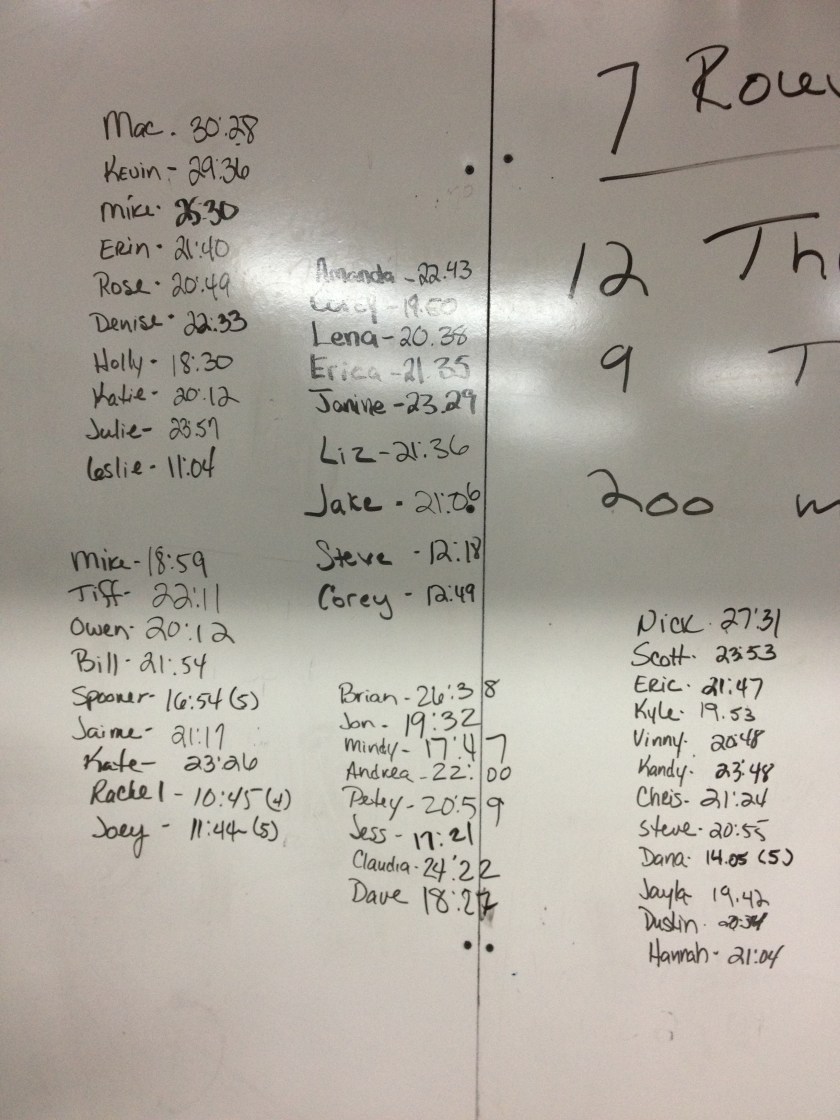 Mac. 30:28
Kevin - 29:36
Mike. 25:30
Erin. 21:40
Rose. 20:49
Denise. 22:33
Holly - 18:30
Katie - 20:12
Julie - 23:57
Leslie - 11:04
Amanda - 22.43
Lena - 20.38
Erica - 21.35
Janine - 23.29
Liz - 21:36
Jake - 21:06
Steve - 12:18
Corey - 12:49
Mike - 18:59
Tiff - 22:11
Owen - 20:12
Bill - 21:54
Spooner - 16:54 (5)
Jaime - 21:17
Kate - 23:26
Rachel - 10:45 (4)
Joey - 11:44 (5)
Brian - 26:38
Jon - 19:32
Mindy - 17:47
Andrea - 22:00
Petey - 20:59
Jess - 17:21
Claudia - 24:22
Dave 18:27
7
12
9 T
200 m
Nick. 27:31
Scott. 23:53
Eric. 21:47
Kyle. 19.53
Vinny. 20:48
Kandy. 23:48
Chris. 21:24
Steve. 20:55
Dana. 14.05 (5)
Jayla 19.42
Dustin.
Hannah - 21:04